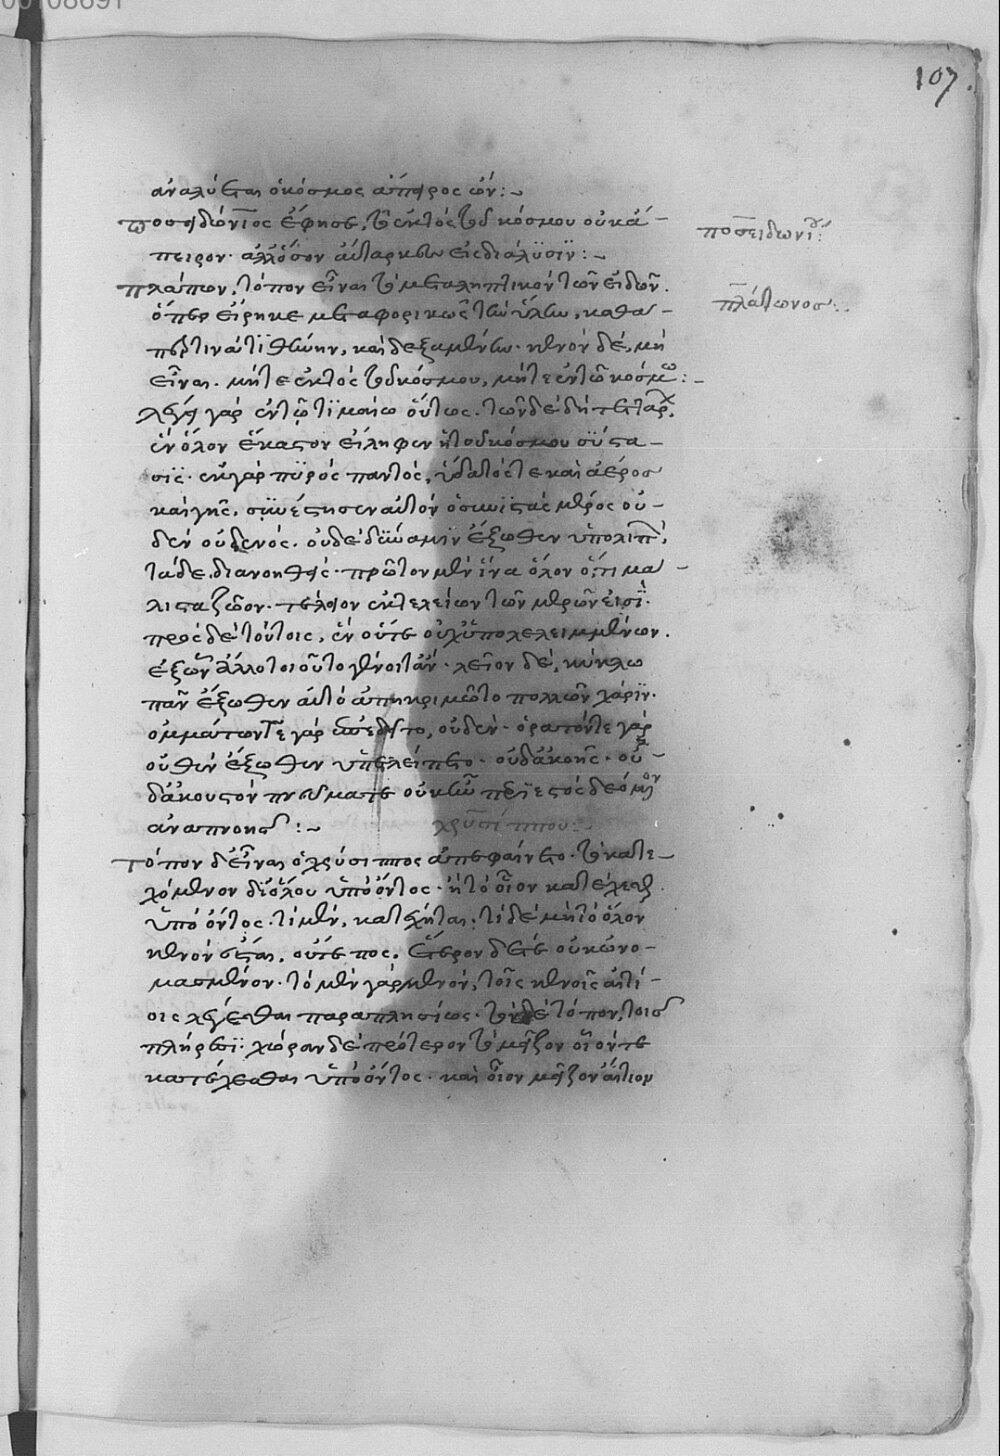 107.
ἀναλύεται ὁ κόσμος ἄπειρος ὤν:~
ποσειδώνιος ἔφησε, τὸ ἐκτὸς τοῦ κόσμου οὐκ ἄ-
πειρον· ἀλλ' ὅσον αὔταρκες εἰς διάλυσιν:~
ποσειδωνίου:
πλάτων, τόπον εἶναι τὸ μεταληπτικὸν τῶν εἰδῶν.
πλάτωνοσ:.
ὅπερ εἴρηκε μεταφορικῶς τὴν ὕλην, καθα-
περ τινα τιθήνην, καὶ δεξαμένην· κενὸν δὲ, μὴ
εἶναι. μήτε ἐκτὸς τοῦ κόσμου, μήτε ἐν τῶ κόσμω:~
λέγει γὰρ ἐν τῶ τιμαίω οὕτως. τῶν δὲ δὴ τεττάρ
ἓν ὅλον ἕκαστον εἴληφεν ἡ τοῦ κόσμου σύστα-
σις· ἐκ γὰρ πυρὸς παντὸς, ὕδατός τε καὶ ἀέροσ
καὶ γῆς, συνέστησεν αὐτὸν ὁ συνιστάς μέρος οὐ-
δὲν οὐδενὸς. οὐδὲ δύναμιν ἔξωθεν ὑπολιπ
τάδε διανοηθείς· πρῶτον μὲν ἵνα ὅλον ὅ,τι μα-
λιστα ζῶον· τέλειον ἐκ τελείων τῶν μερῶν εἰσί.
πρὸς δὲ τούτοις, ἓν οὔτε οὐχ ὑπολελειμμένων.
ἐξ ὧν ἄλλο τοιοῦτο γένοιτ' ἄν· λεῖον δὲ, κύκλω
πᾶν ἔξωθεν αὐτὸ ἀπηκριμῶτο πολλῶν χάριν.
ὀμμάτων τε γὰρ ἐπεδεῖτο, οὐδὲν· ὁρατόν τε γὰρ
οὐθὲν ἔξωθεν ὑπελείπετο· οὐδ' ἀκοῆς· οὐ-
δ' ἀκουστὸν πνεύματε οὐκ ἦν περιεστὸς δεόμενον
ἀναπνοῆσ:~
χρυσίππου:
τόπον δ' εἶναι ὁ χρύσιππος ἀπεφαίνετο· τὸ κατε-
χόμενον δι' ὅλου ὑπὸ ὄντος· ἢ τὸ οἷον κατέχεσθαι
ὑπὸ ὄντος· τί μὲν, κατέχηται; τί δὲ μὴ τὸ ὅλον
κενὸν οὔτε πος. ἕτερον δέ τε οὐκ ὠνο-
μασμένον· τὸ μὲν γὰρ κενὸν, τοῖς κενοῖς ἀντί-
οις λέγεσθαι παραπλησίως· τὸν δὲ τόπον, τοισ
πλήρεσι· χώραν δὲ πρότερον τὸ μεῖζον οἷόν τε
κατέχεσθαι ὑπὸ ὄντος. καὶ οἷον μεῖζον αἴτιον